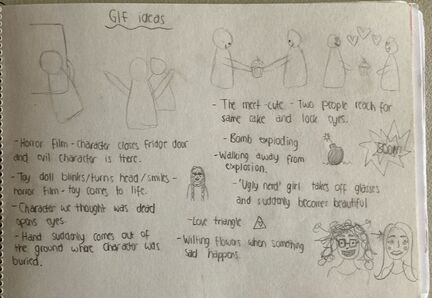 GIF ideas
- Horror film - character closes fridge door
and evil character is there.
- Toy doll blinks/turns head/smiles -
horror film - toy comes to life.
- Character we thought was dead
opens eyes.
- Hand suddenly comes out of
the ground where character was
buried.
- The meet-cute - Two people reach for
same cake and lock eyes.
- Bomb exploding
- Walking away from
explosion.
BOOM!
- 'Ugly nerd' girl takes off glasses
and suddenly becomes beautiful
- Love triangle
- Wilting flowers when something
sad happens.